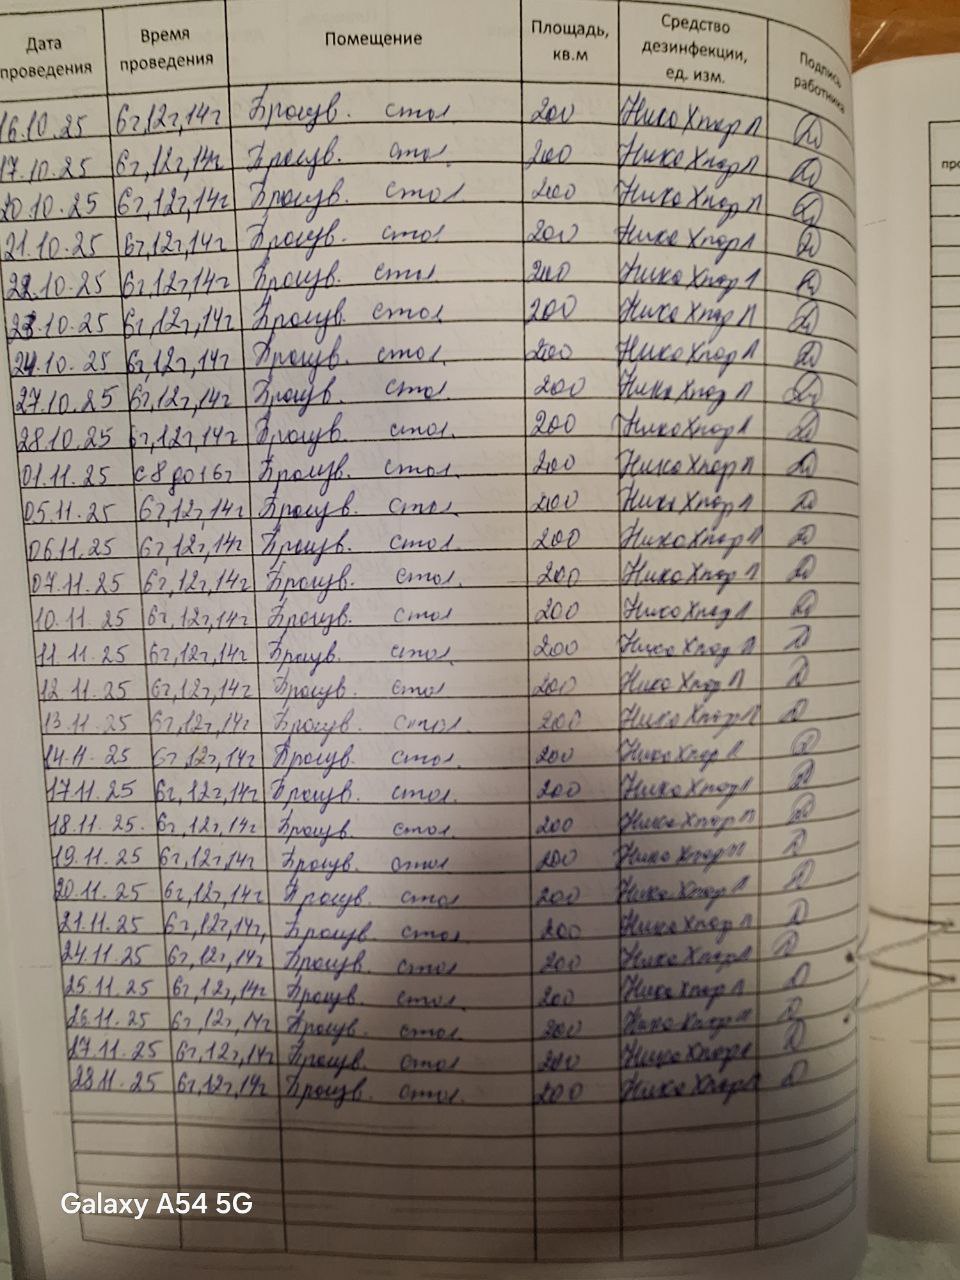 Дата проведения Время проведения Помещение Площадь, кв.м Средство дезинфекции, ед. изм. Подпись работника
16.10.25 6ч,12ч,14ч Произв. стол 200 НикаХлор П
17.10.25 6ч,12ч,14ч Произв. стол 200 НикаХлор П
20.10.25 6ч,12ч,14ч Произв. стол 200 НикаХлор П
21.10.25 6ч,12ч,14ч Произв. стол 200 НикаХлор П
22.10.25 6ч,12ч,14ч Произв. стол 200 НикаХлор П
23.10.25 6ч,12ч,14ч Произв. стол 200 НикаХлор П
24.10.25 6ч,12ч,14ч Произв. стол 200 НикаХлор П
27.10.25 6ч,12ч,14ч Произв. стол 200 НикаХлор П
28.10.25 6ч,12ч,14ч Произв. стол. 200 НикаХлор П
01.11.25 с 8 до 16ч Произв. стол. 200 НикаХлор П
05.11.25 6ч,12ч,14ч Произв. стол. 200 НикаХлор П
06.11.25 6ч,12ч,14ч Произв. стол. 200 НикаХлор П
07.11.25 6ч,12ч,14ч Произв. стол. 200 НикаХлор П
10.11.25 6ч,12ч,14ч Произв. стол 200 НикаХлор П
11.11.25 6ч,12ч,14ч Произв. стол 200 НикаХлор П
12.11.25 6ч,12ч,14ч Произв. стол 200 НикаХлор П
13.11.25 6ч,12ч,14ч Произв. стол. 200 НикаХлор П
14.11.25 6ч,12ч,14ч Произв. стол. 200 НикаХлор П
17.11.25 6ч,12ч,14ч Произв. стол. 200 НикаХлор П
18.11.25. 6ч,12ч,14ч Произв. стол. 200 НикаХлор П
19.11.25 6ч,12ч,14ч Произв. стол 200 НикаХлор П
20.11.25 6ч,12ч,14ч Произв. стол. 200 НикаХлор П
21.11.25 6ч,12ч,14ч, Произв. стол 200 НикаХлор П
24.11.25 6ч,12ч,14ч Произв. стол 200 НикаХлор П
25.11.25 6ч,12ч,14ч Произв. стол 200 НикаХлор П
26.11.25 6ч,12ч,14ч Произв. стол 200 НикаХлор П
27.11.25 6ч,12ч,14ч Произв. стол 200 НикаХлор П
28.11.25 6ч,12ч,14ч Произв. стол. 200 НикаХлор П
Galaxy A54 5G